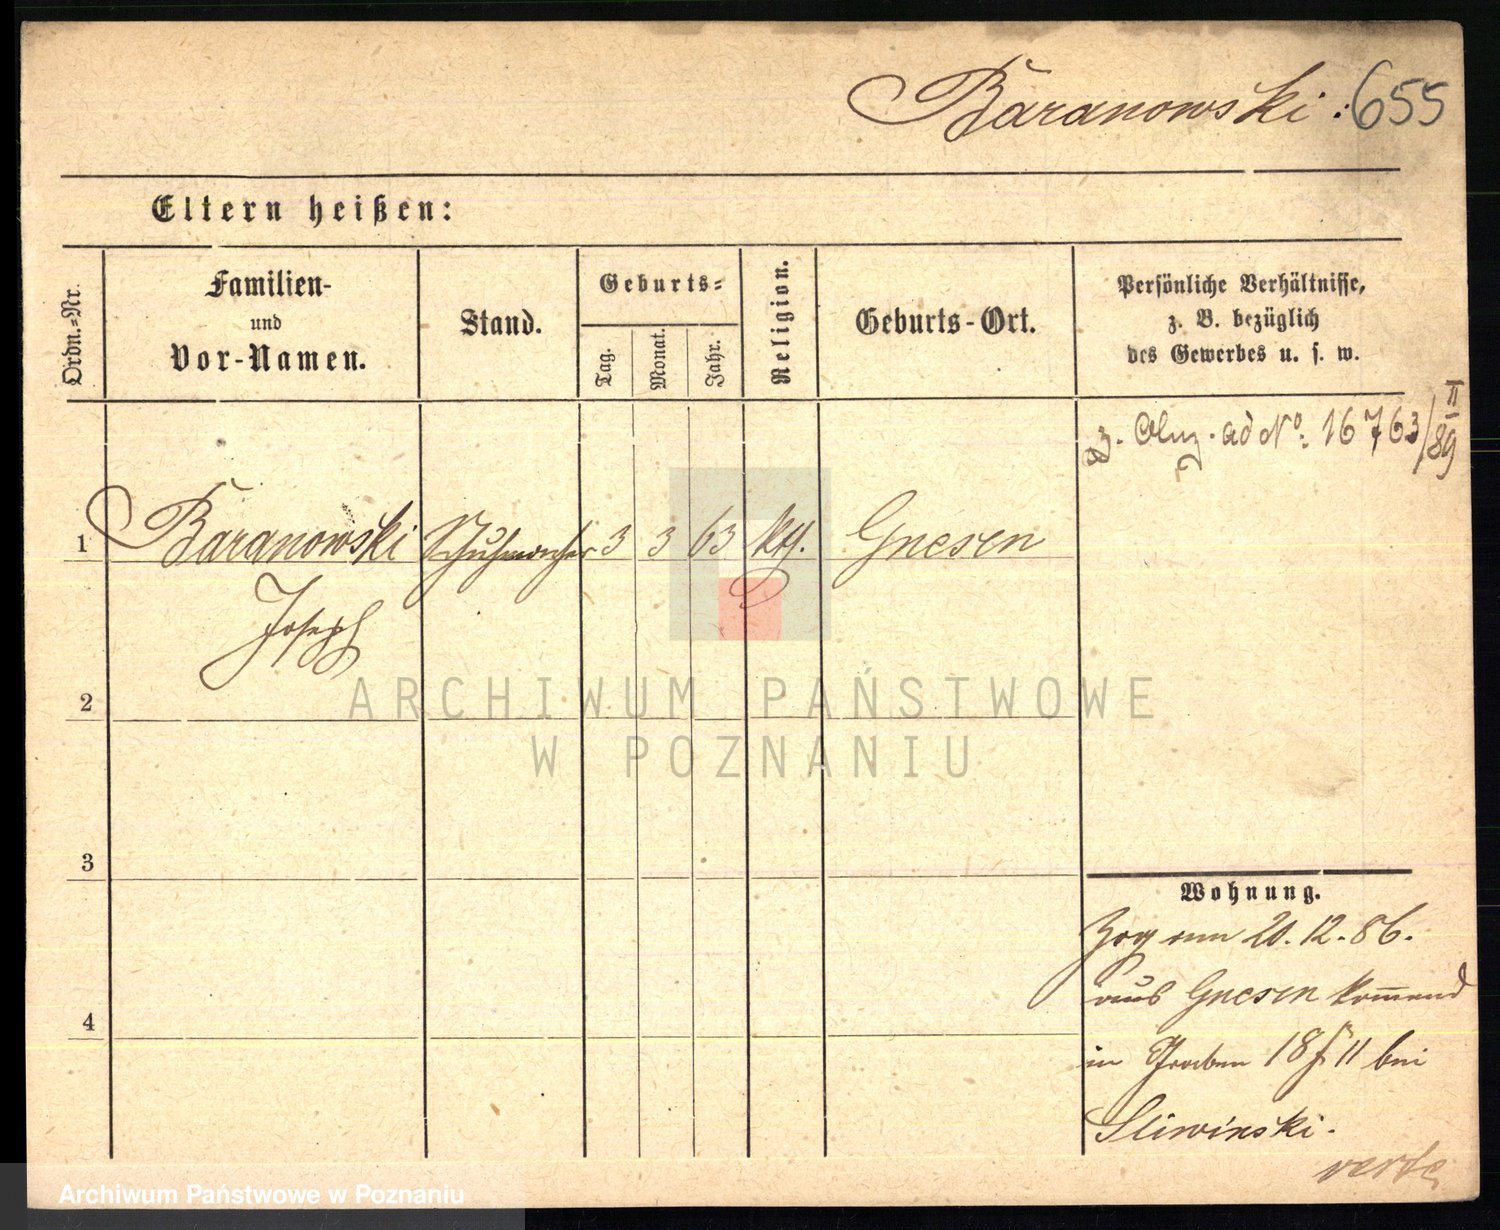 Baranowski: 655
Eltern heißen:
Ordn.=Nr.
Familien-
und
Vor-Namen.
Stand.
Geburts=
Tag.
Monat.
Jahr.
Religion.
Geburts-Ort.
Persönliche Verhältnisse,
z. B. bezüglich
des Gewerbes u. s. w.
ad No. 16763/II 89
1 Baranowski Schuhmacher 3 3 63 kth. Gnesen
Joseph
2
3
4
Wohnung.
Zog am 20.12.86.
aus Gnesen kom̅end
in Graben 18 II bei
Sliwinski.
verte
ARCHIWUM PAŃSTWOWE
W POZNANIU
Archiwum Państwowe w Poznaniu